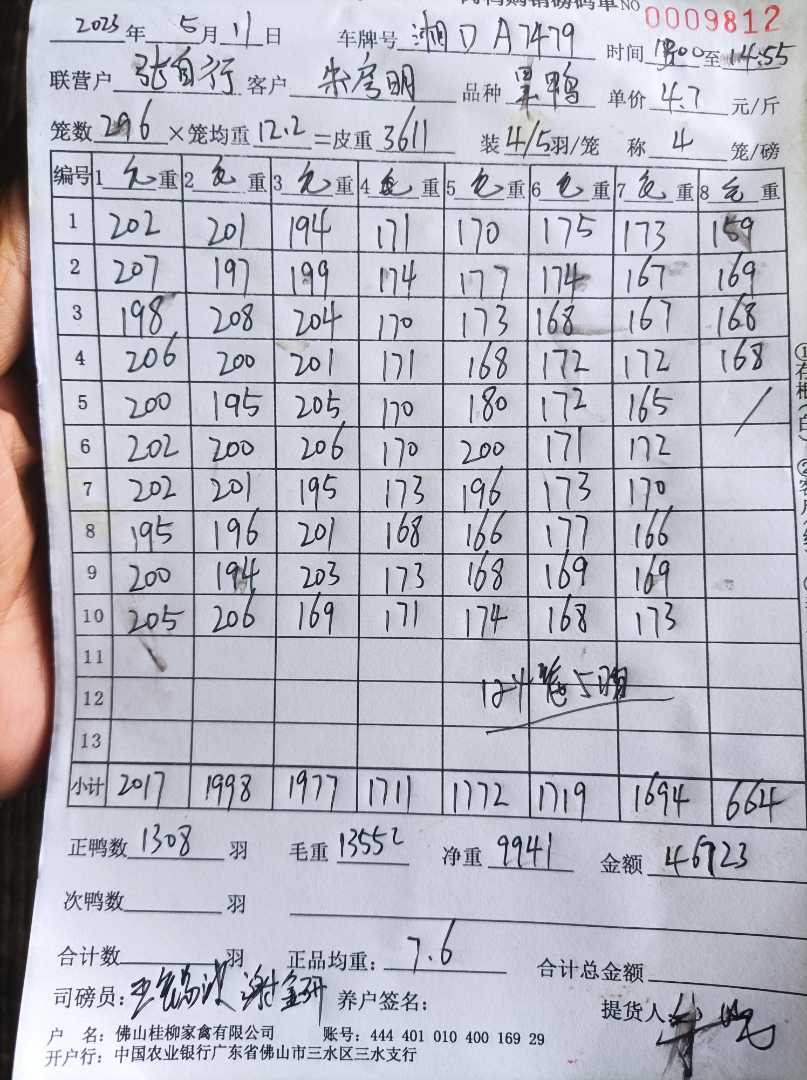 磅码单 NO 0009812
2023年 5月 11日 车牌号 湘D A7479 时间 至 14:55
联营户 客户 品种 单价 4.7 元/斤
笼数 296 ×笼均重 12.2 =皮重 3611 装 4/5 羽/笼 称 4 笼/磅
编号 1 毛 重 2 毛 重 3 毛 重 4 毛 重 5 毛 重 6 毛 重 7 毛 重 8 毛 重
1 202 201 194 171 170 175 173 159
2 207 197 199 174 177 174 167 169
3 198 208 204 170 173 168 167 168
4 206 200 201 171 168 172 172 168
5 200 195 205 170 180 172 165 /
6 202 200 206 170 200 171 172
7 202 201 195 173 196 173 170
8 195 196 201 168 166 177 166
9 200 194 203 173 168 169 169
10 205 206 169 171 174 168 173
11
12 124笼5
13
小计 2017 1998 1977 1711 1772 1719 1694 664
正鸭数 1308 羽 毛重 13552 净重 9941 金额 46723
次鸭数 羽
合计数 羽 正品均重: 7.6 合计总金额
司磅员: 养户签名: 提货人:
户 名: 佛山桂柳家禽有限公司 账号: 444 401 010 400 169 29
开户行: 中国农业银行广东省佛山市三水区三水支行